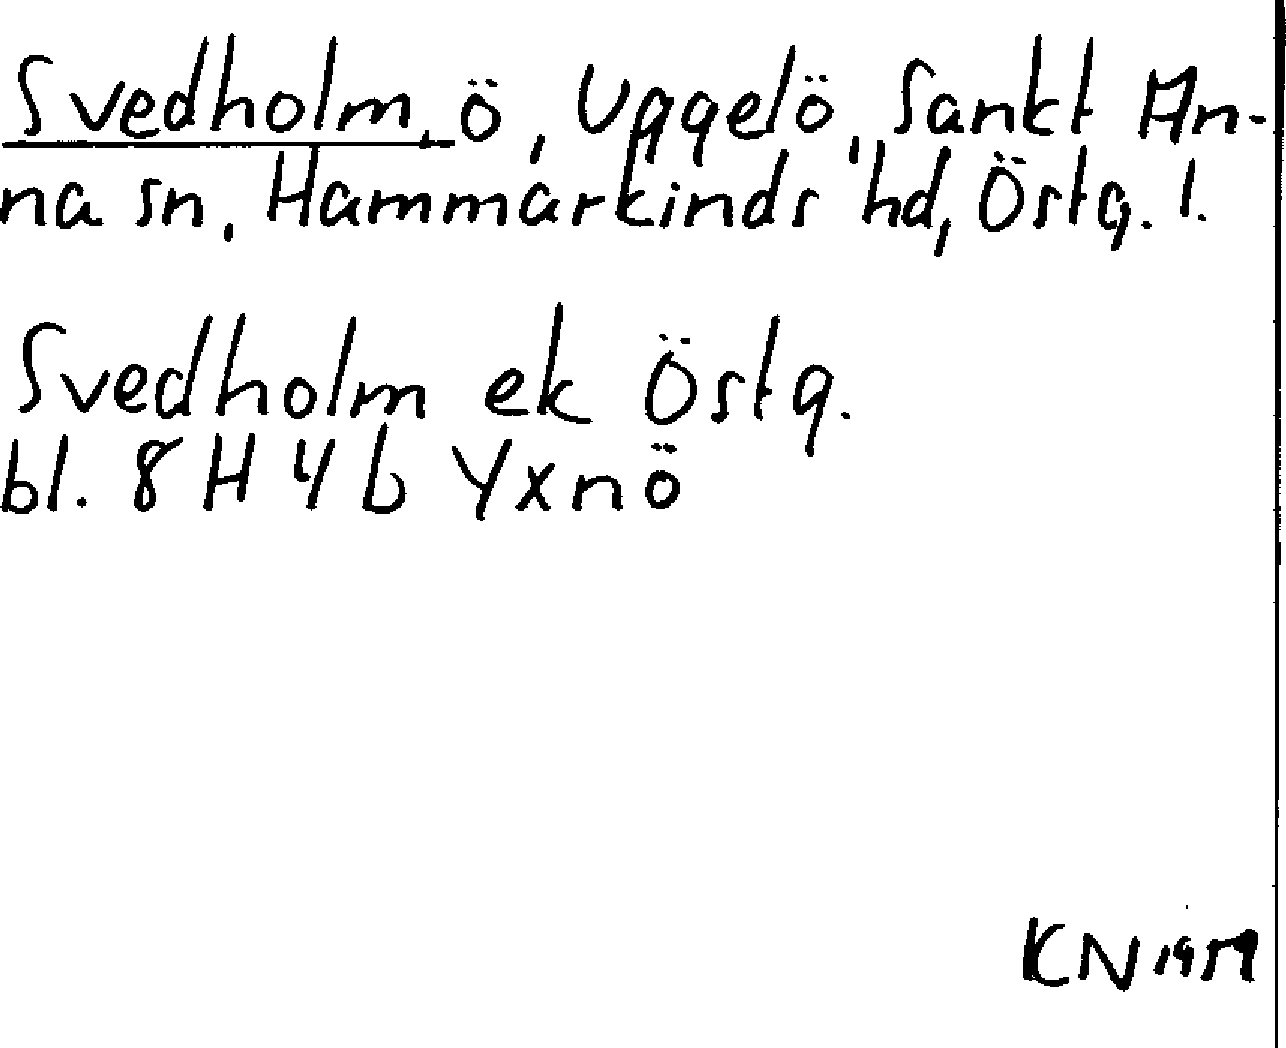 Svedholm, ö, Uggelö, Sankt An-
na sn, Hammarkinds hd, Östg. l.
Svedholm ek Östg.
bl. 8H4b Yxnö
KN 1959